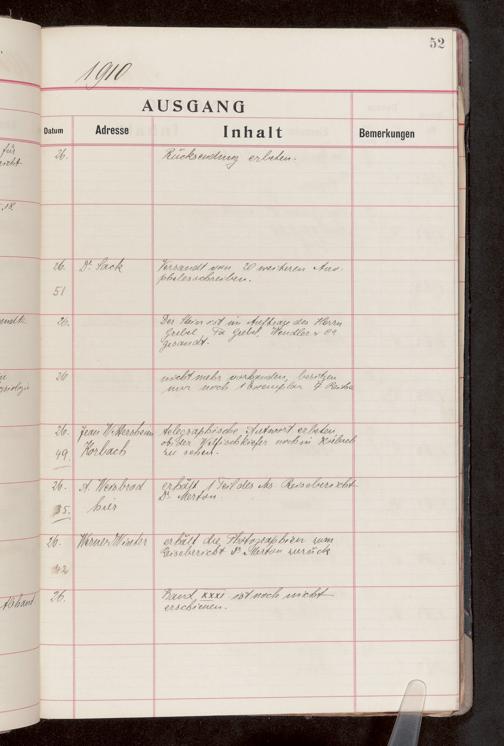 52
1910
AUSGANG
Datum Adresse Inhalt Bemerkungen
26. Rücksendung erbeten.
26. Dr. Sack Versandt von 20 weiteren
51
26. Der Stein ist im Auftrage des Herrn
Grebel, Wendler &
gesandt.
26 nicht mehr vorhanden, besitzen
nur noch 1 Exemplar
26. Jean telegraphische Antwort erbeten
49. Korbach ob der noch in Korbach
zu sehen.
26. A. Weisbrod erhält 1 Teil des Ms. Reisebericht
35. hier Dr. Merton.
26. Werner Winter erhält die Photographien zum
42 Reisebericht Dr. Merton zurück
26. Band XXXI ist noch nicht
erschienen.
für